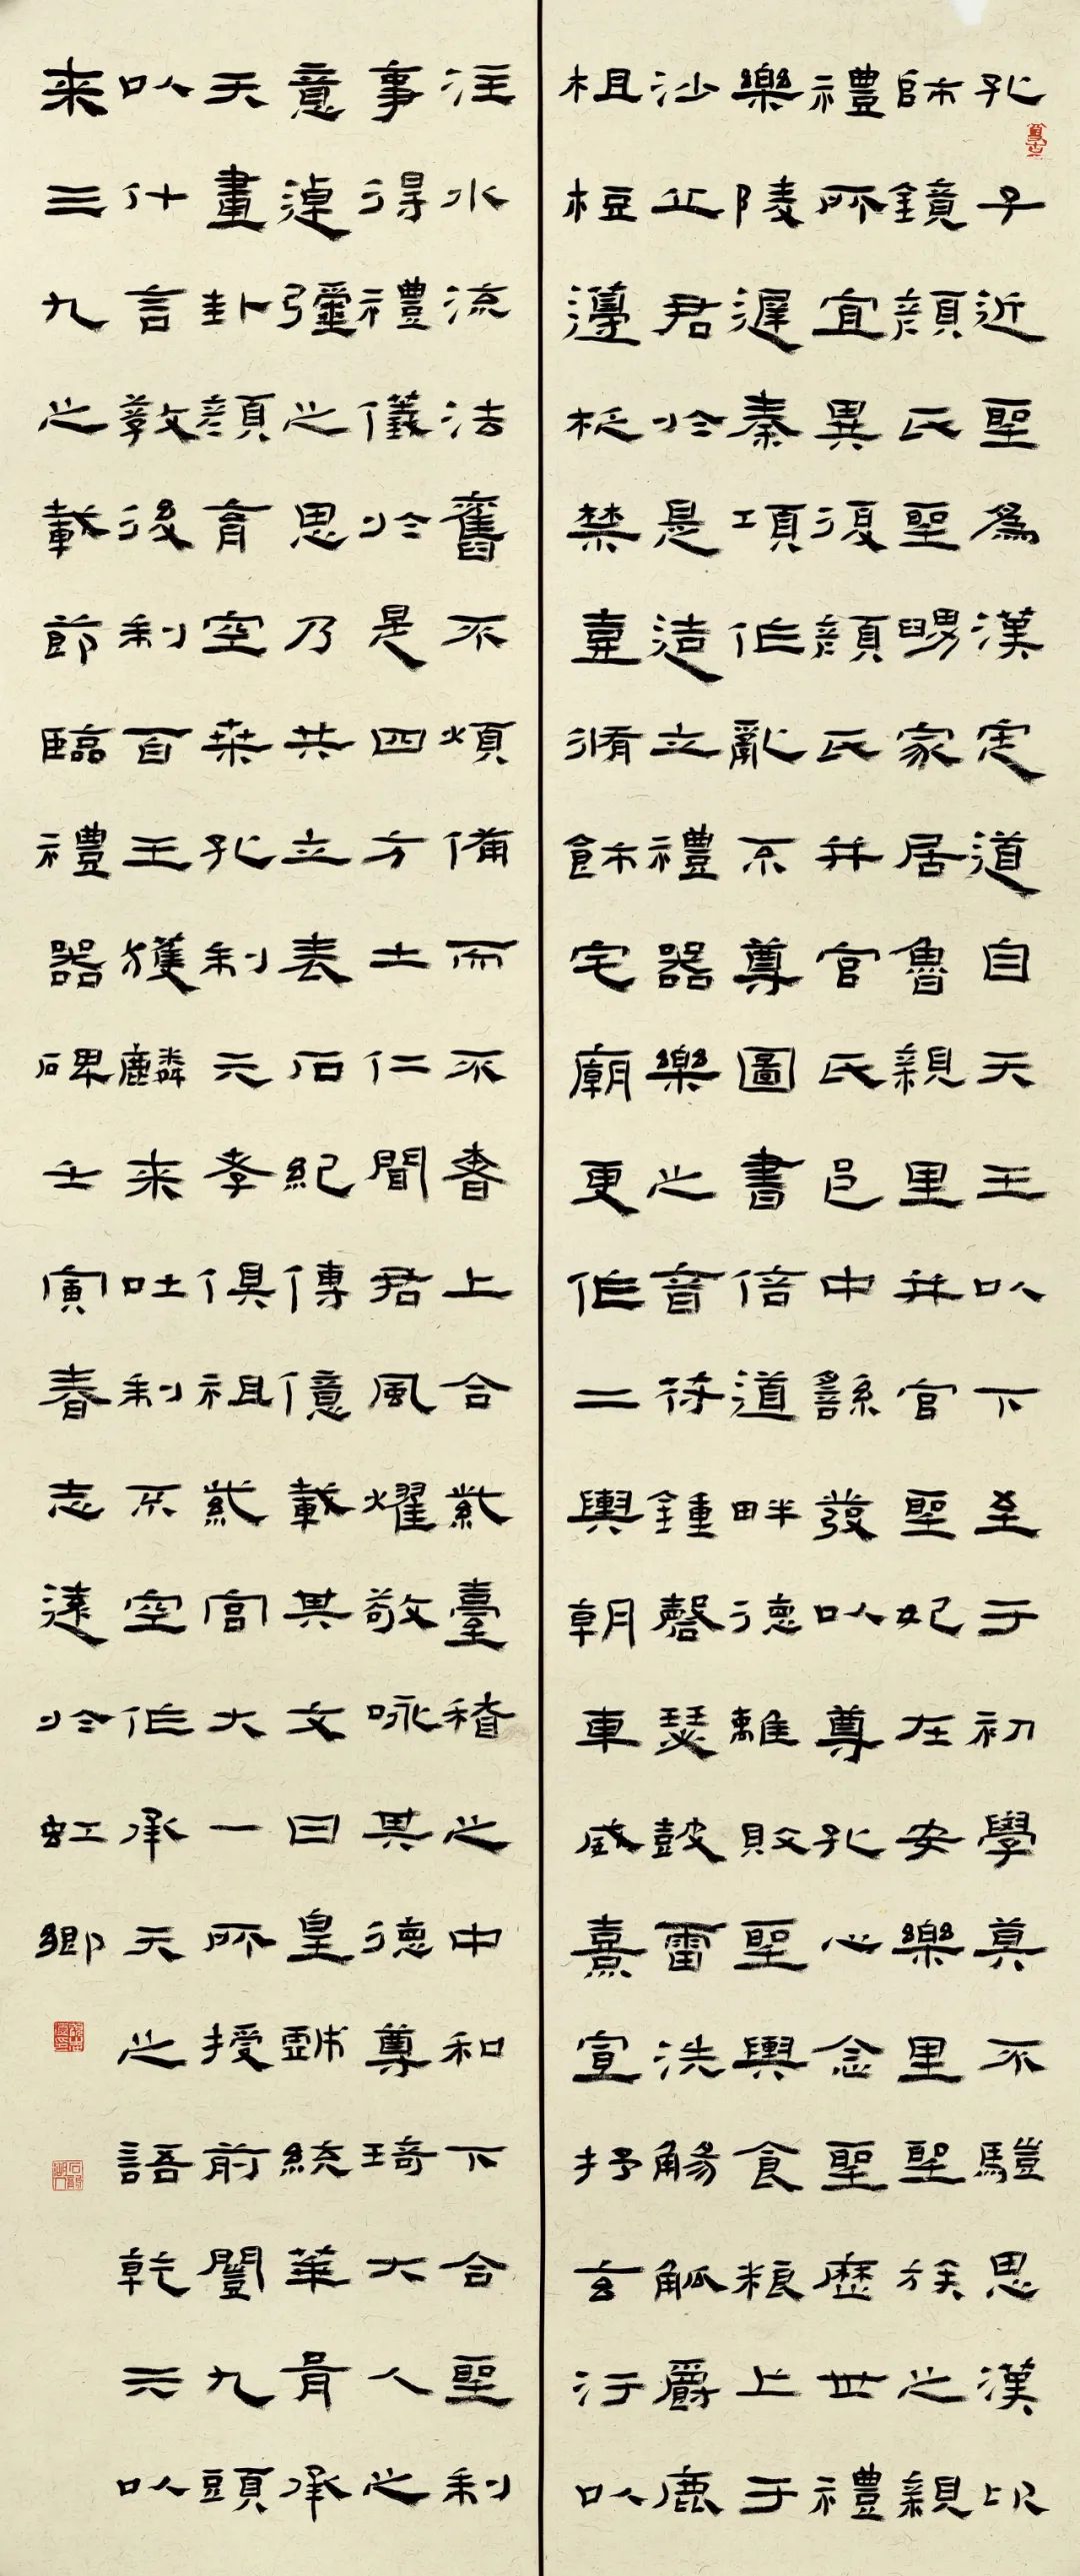 孔子近聖爲漢定道自天王以下至于初學莫不驥思漢卬
師鏡顔氏聖舅家居魯親里并官聖妃在安樂里聖族之親
禮所宜異復顔氏并官氏邑中繇發以尊孔心念聖歷世禮
樂陵遲秦項作亂不尊圖書倍道畔德離敗聖輿食粮亡于
沙丘君於是造立禮器樂之音符鍾磬瑟鼓雷洗觴觚爵鹿
柤梪籩柉禁壺脩飾宅廟更作二輿朝車威熹宣抒玄汙以
注水流法舊不煩備而不奢上合紫臺稽之中和下合聖制
事得禮儀於是四方士仁聞君風燿敬咏其德尊琦大人之
意逴彌之思乃共立表石紀傳億載其文曰皇戲統華胥承
天畫卦顔育空桒孔制元孝俱祖紫宮大一所授前闓九頭
以什言敎後制百王獲麟来吐制不空作承天之語乾元以
来三九之載節臨禮器碑壬寅春志遠於虹鄉